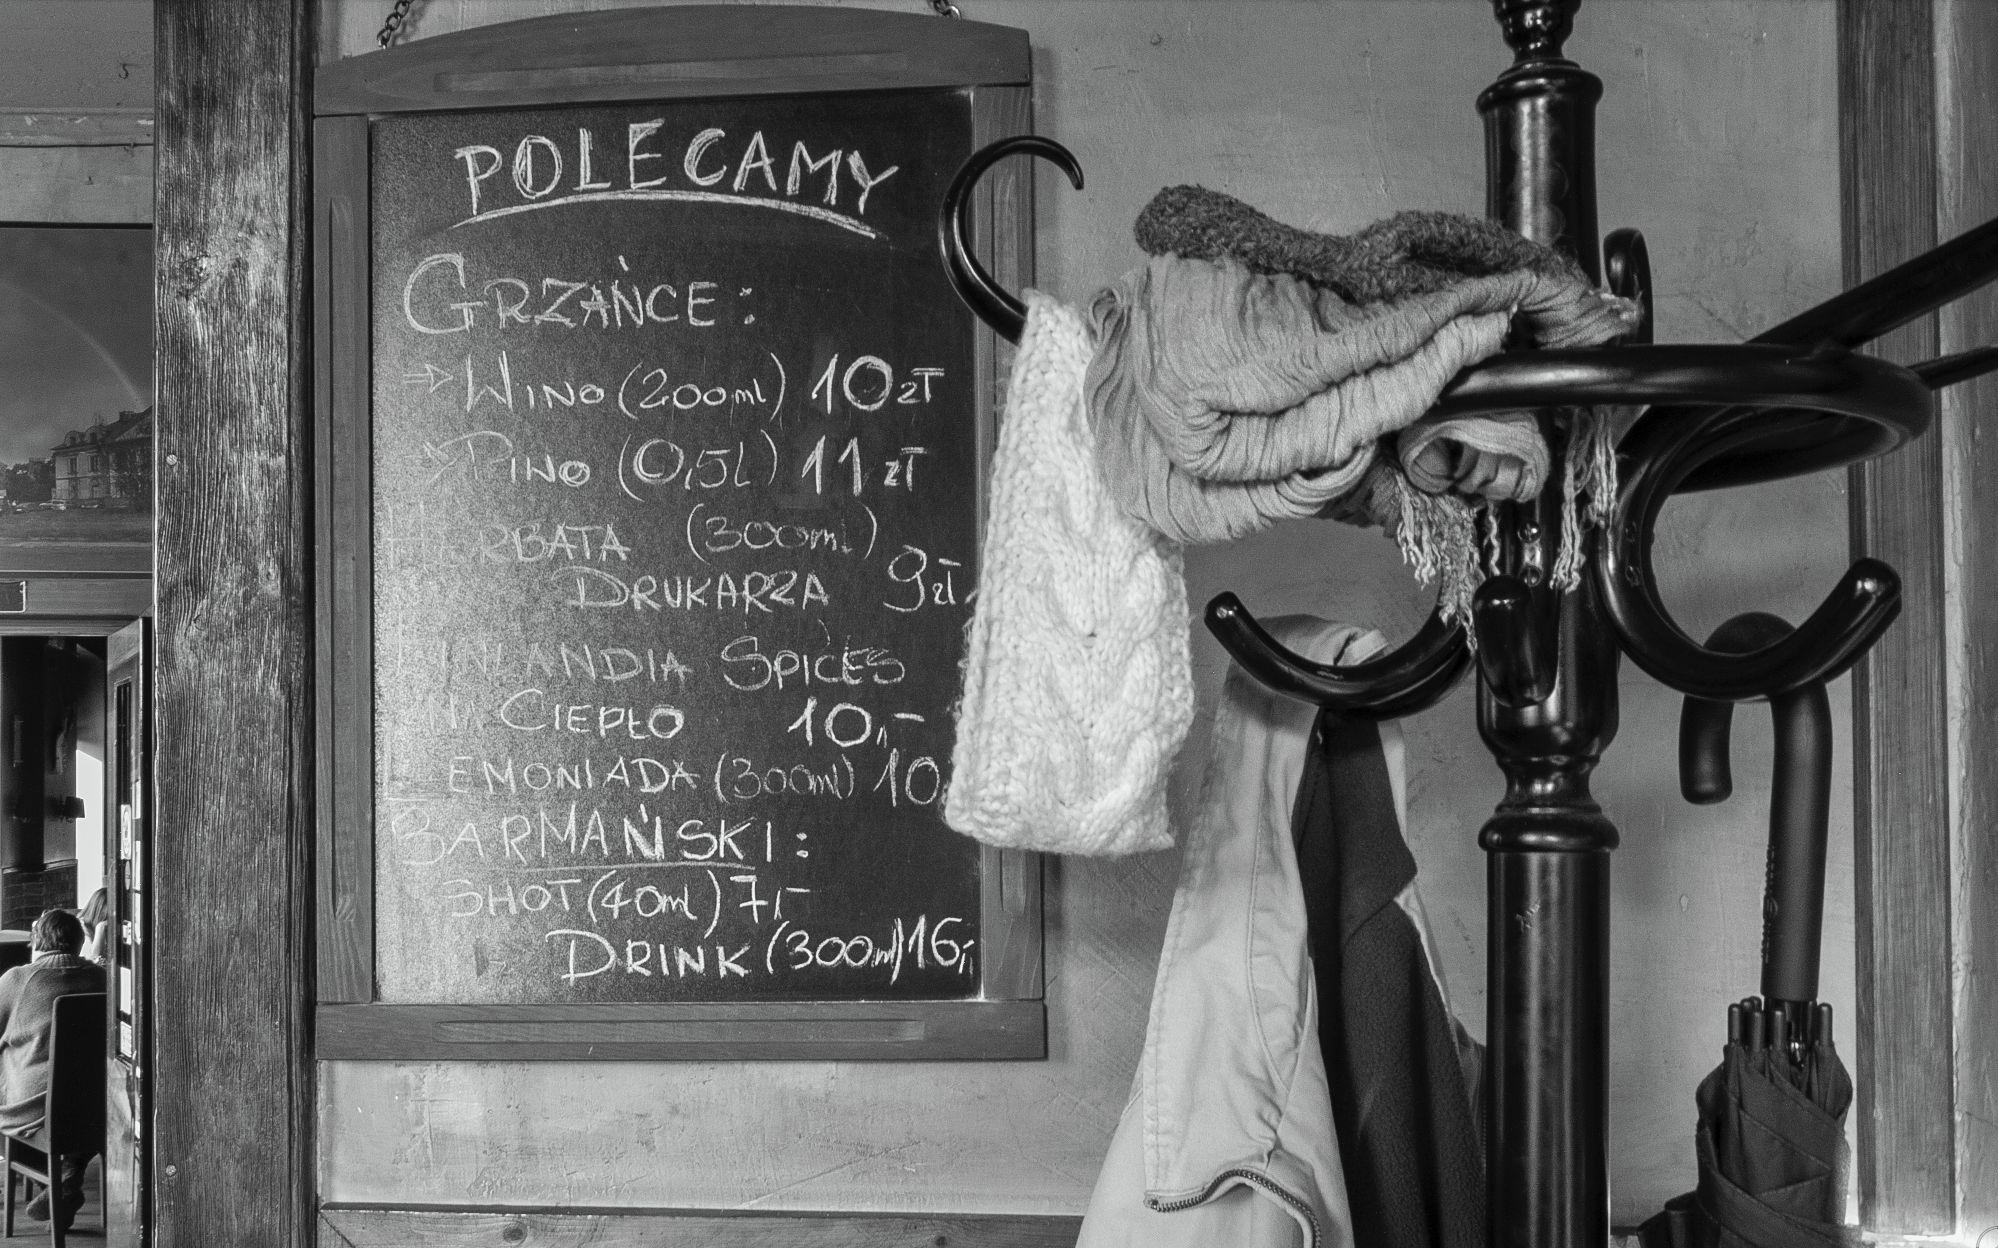 POLECAMY
GRZAŃCE:
→ WINO (200ml) 10 zł
→ PIWO (0,5l) 11 zł
HERBATA (300ml)
DRUKARZA 9 zł
FINLANDIA SPICES
CIEPŁO 10,-
LEMONIADA (300ml) 10
BARMAŃSKI:
SHOT (40ml) 7,-
DRINK (300ml) 16,-